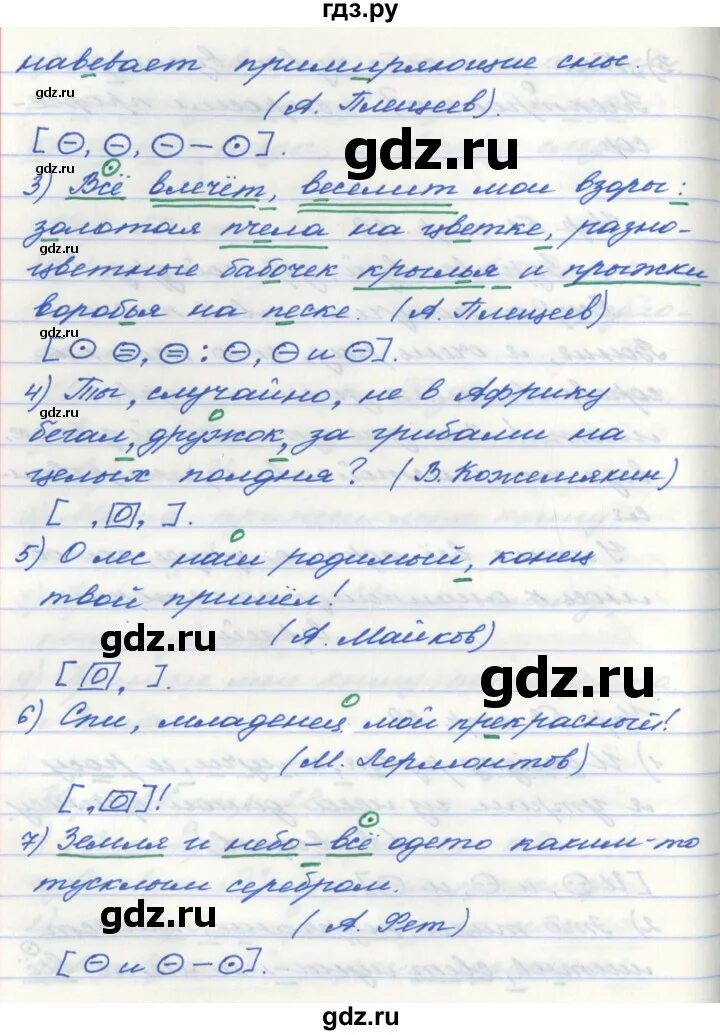 гдз.ру
навевает примиряющие сны.
gdz.ru
(А. Плещеев).
[⊖, ⊖, ⊖ – ⊙].
gdz.ru
gdz.ru
3) Всё влечёт, веселит мои взоры:
золотая пчела на цветке, разно-
gdz.ru
цветные бабочек крылья и прыжки
воробья на песке. (А. Плещеев)
gdz.ru
[⊙ ⊜, ⊜ : ⊖, ⊖ и ⊖].
4) Ты, случайно, не в Африку
gdz.ru
бегал, дружок, за грибами на
целых полдня? (В. Кожемякин)
gdz.ru
[ ,О, ].
5) О лес наш родимый, конец
gdz.ru
твой пришёл!
(А. Майков)
gdz.ru
gdz.ru
[О, ].
6) Спи, младенец мой прекрасный!
gdz.ru
(М. Лермонтов)
[ ,О]!
7) Земля и небо – всё одето каким-то
gdz.ru
тусклым серебром.
gdz.ru
(А. Фет)
[⊖ и ⊖ – ⊙].
gdz.ru
гдз.ру